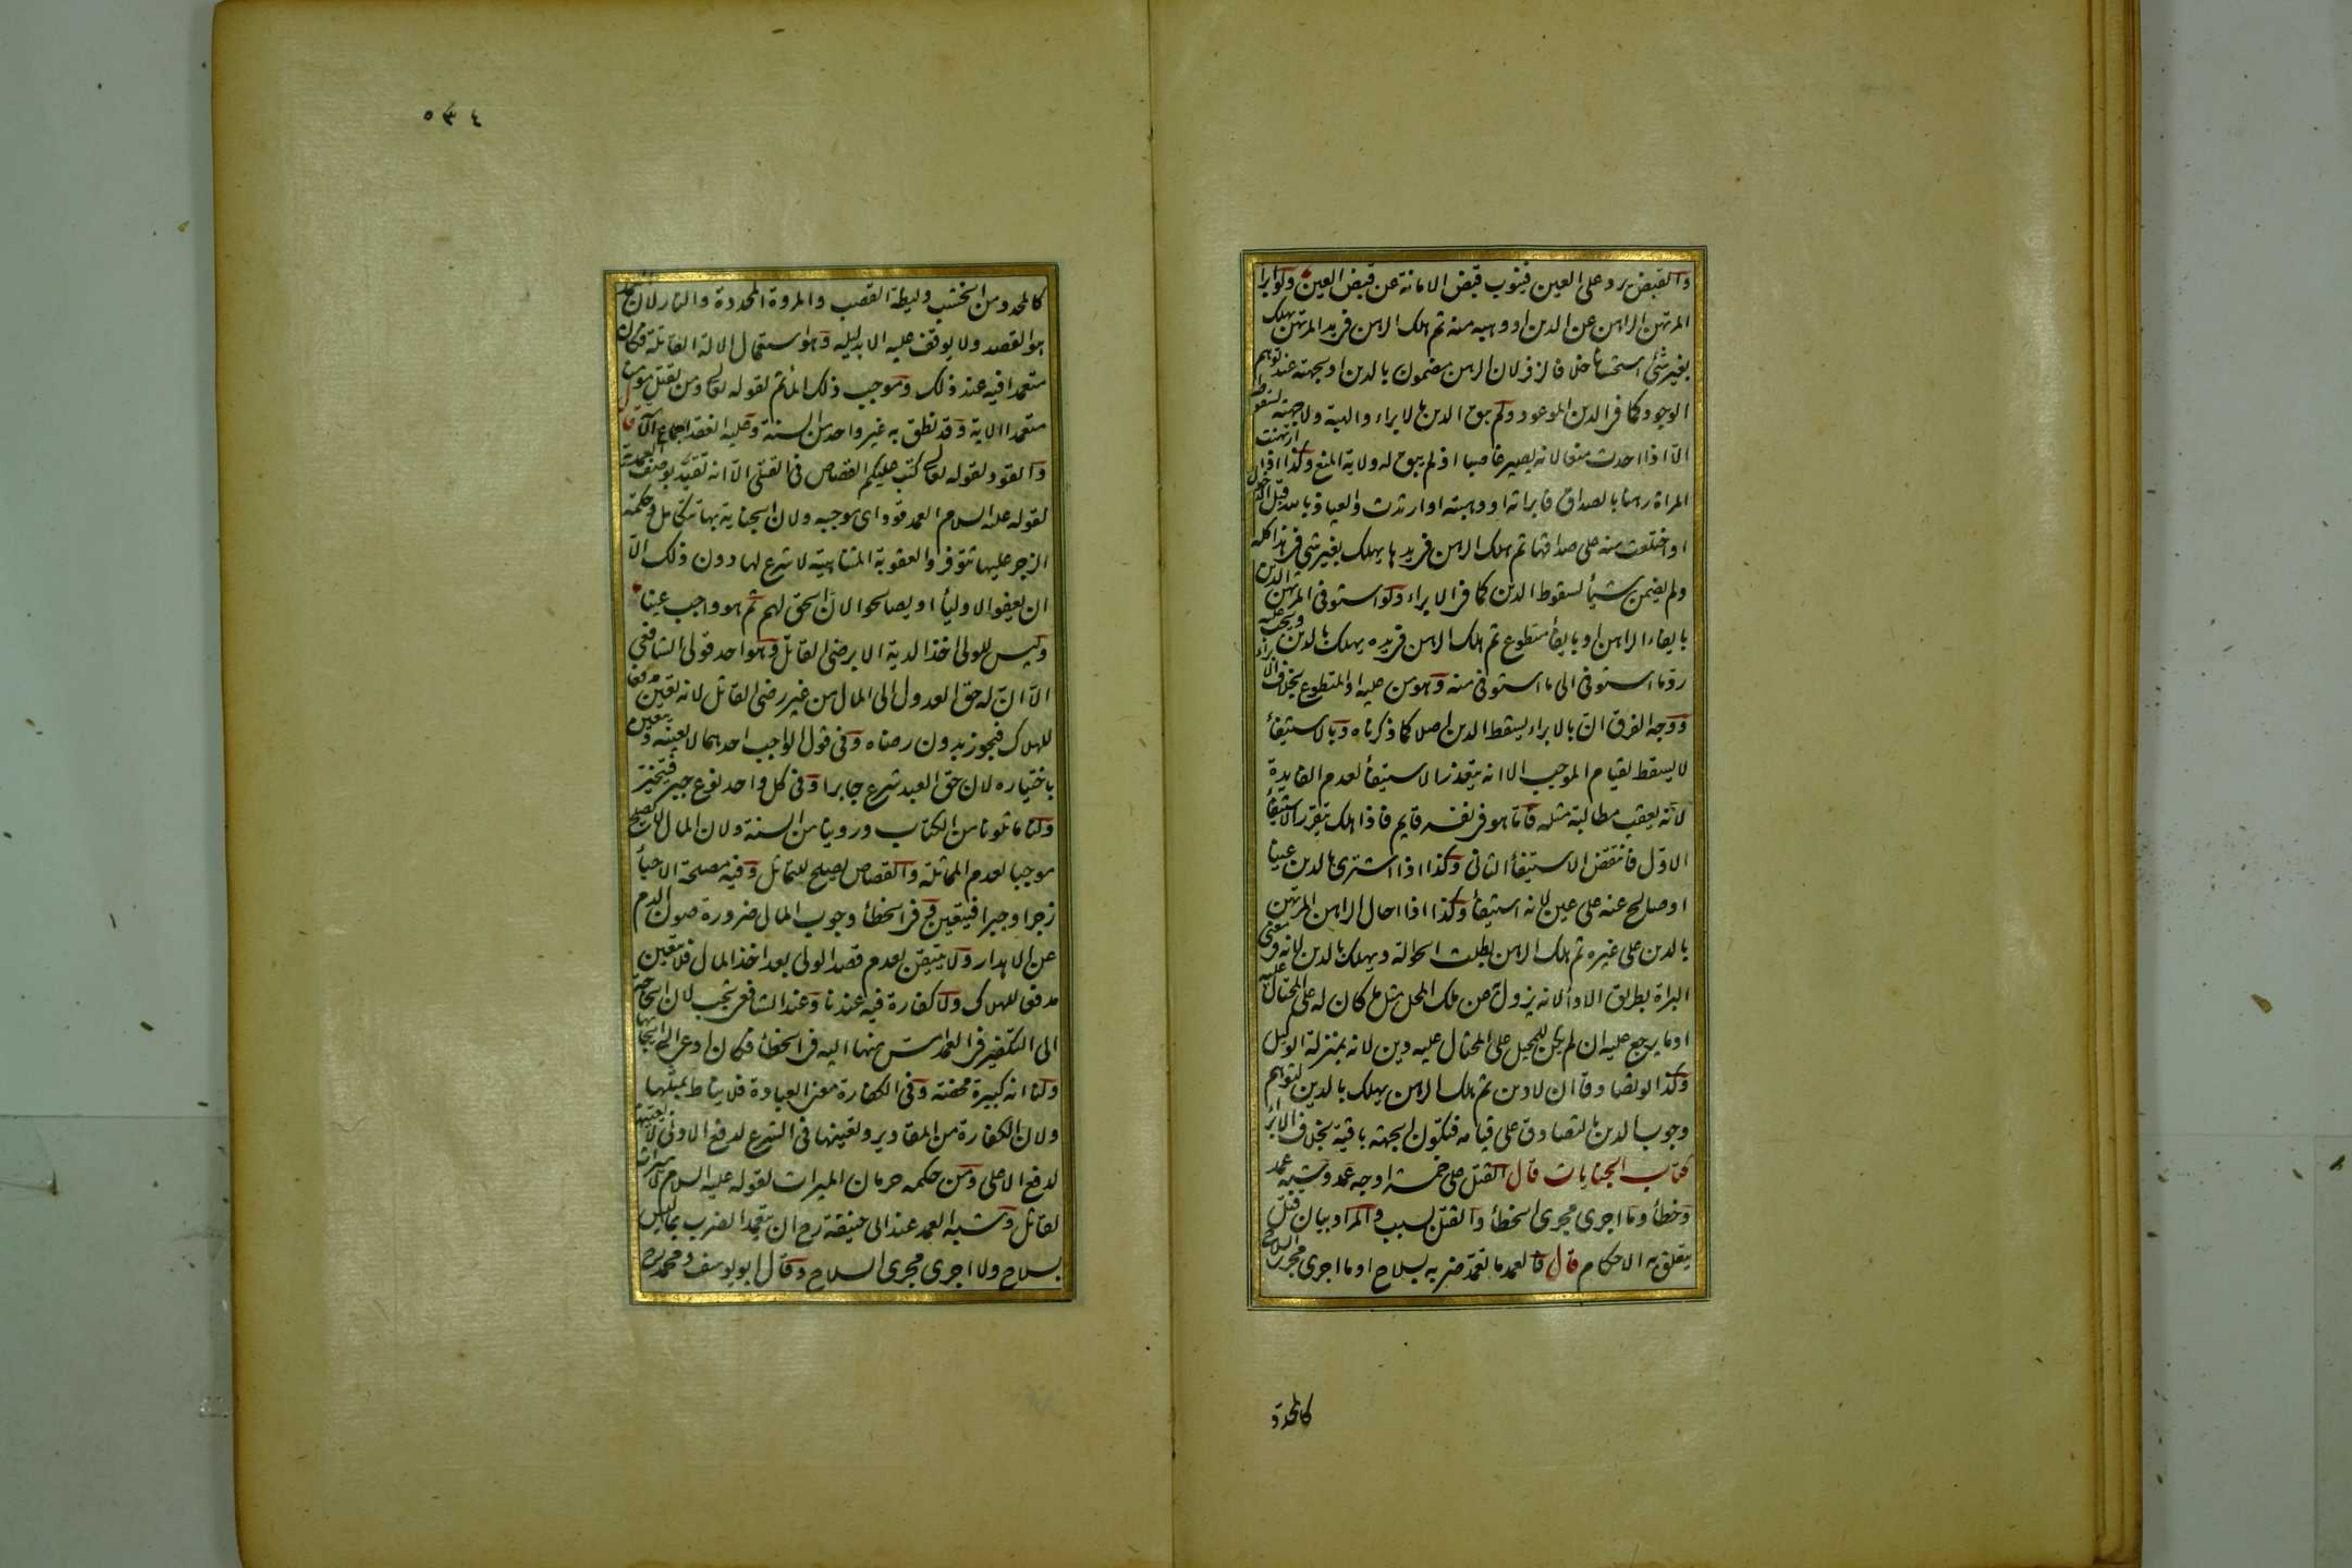 والقبض يرد على العين فينوب قبض الامانة عن قبض العين ولو ابرأ
المرتهن الراهن عن الدين او وهبه منه ثم هلك الرهن في يد المرتهن يهلك
بغير شئ استحسانا خلافا لزفر لان الرهن مضمون بالدين او بجهته عند توهم
الوجود كما في الدين الموعود ولم يبق الدين بالابراء والهبة ولا جهته لسقوطه
الا اذا احدث منعا لانه يصير غاصبا اذ لم يبق له ولاية المنع وكذا اذا ارتهنت
المراة رهنا بالصداق فابرأته او وهبته او ارتدت والعياذ بالله قبل الدخول
او اختلعت منه على صداقها ثم هلك الرهن في يدها يهلك بغير شئ في هذا كله
ولم يضمن شيأ لسقوط الدين كما في الابراء ولو استوفى المرتهن الدين
بايفاء الراهن او بايفاء متطوع ثم هلك الرهن في يده يهلك بالدين ويجب عليه
رد ما استوفى الى ما استوفى منه وهو من عليه او المتطوع بخلاف الابراء
ووجه الفرق ان بالابراء يسقط الدين اصلا كما ذكرناه وبالاستيفاء
لا يسقط لقيام الموجب الا انه يتعذر الاستيفاء لعدم الفايدة
لانه يعقب مطالبة مثله فاما هو في نفسه قايم فاذا هلك يتقرر الاستيفاء
الاول فانتقض الاستيفاء الثانى وكذا اذا اشترى بالدين عينا
او صالح عنه على عين لانه استيفاء وكذا اذا احال الراهن المرتهن
بالدين على غيره ثم هلك الرهن بطلت الحوالة ويهلك بالدين لانه في معنى
البراة بطريق الاداء لانه يزول به عن ملك المحيل مثل ما كان له على المحتال عليه
او ما يرجع عليه ان لم يكن للمحيل على المحتال عليه دين لانه بمنزلة الوكيل
وكذا لو تصادقا ان لا دين ثم هلك الرهن يهلك بالدين لتوهم
وجوب الدين بالتصادق على قيامه فتكون الجهة باقية بخلاف الابراء
كتاب الجنايات قال القتل على خمسة اوجه عمد وشبه عمد
وخطأ وما اجرى مجرى الخطأ والقتل بسبب والمراد بيان قتل
يتعلق به الاحكام قال فالعمد ما تعمد ضربه بسلاح او ما اجرى مجرى السلاح
كالمحدد
٥٣٤
كالمحدد من الخشب وليطة القصب والمروة المحددة والنار لان العمد
هو القصد ولا يوقف عليه الا بدليله وهو استعمال الالة القاتلة فكان
متعمدا فيه عند ذلك وموجب ذلك المأثم لقوله تعالى ومن يقتل مؤمنا
متعمدا الاية وقد نطق به غير واحد من السنة وعليه انعقد اجماع الامة قال
والقود لقوله تعالى كتب عليكم القصاص في القتلى الا انه تقيد بوصف العمدية
لقوله عليه السلام العمد قود اى موجبه ولان الجناية بها تتكامل وحكمة
الزجر عليها تتوفر والعقوبة المتناهية لا شرع لها دون ذلك الا
ان يعفو الاولياء او يصالحوا لان الحق لهم ثم هو واجب عينا
وليس للولى اخذ الدية الا برضى القاتل وهو احد قولى الشافعي
الا ان له حق العدول الى المال من غير رضى القاتل لانه تعين مدفعا
للهلاك فيجوز بدون رضاه وفي قول الواجب احدهما لا بعينه ويتعين
باختياره لان حق العبد شرع جابرا وفي كل واحد نوع جبر فيتخير
ولنا ما تلونا من الكتاب وروينا من السنة ولان المال لا يصلح
موجبا لعدم المماثلة والقصاص يصلح للتماثل وفيه مصلحة الاحياء
زجرا وجبرا فيتعين وفي الخطأ وجوب المال ضرورة صون الدم
عن الاهدار ولا يتيقن بعدم قصد الولى بعد اخذ المال فلا يتعين
مدفعا للهلاك ولا كفارة فيه عندنا وعند الشافعي تجب لان الحاجة
الى التكفير في العمد امس منها اليه في الخطأ فكان ادعى الى ايجابها
ولنا انه كبيرة محضة وفي الكفارة معنى العبادة فلا يناط بمثلها
ولان الكفارة من المقادير وتعينها في الشرع لدفع الادنى لا يعينها
لدفع الاعلى ومن حكمه حرمان الميراث لقوله عليه السلام لا ميراث
لقاتل وشبه العمد عند ابى حنيفة رح ان يتعمد الضرب بما ليس
بسلاح ولا اجرى مجرى السلاح وقال ابو يوسف ومحمد رح